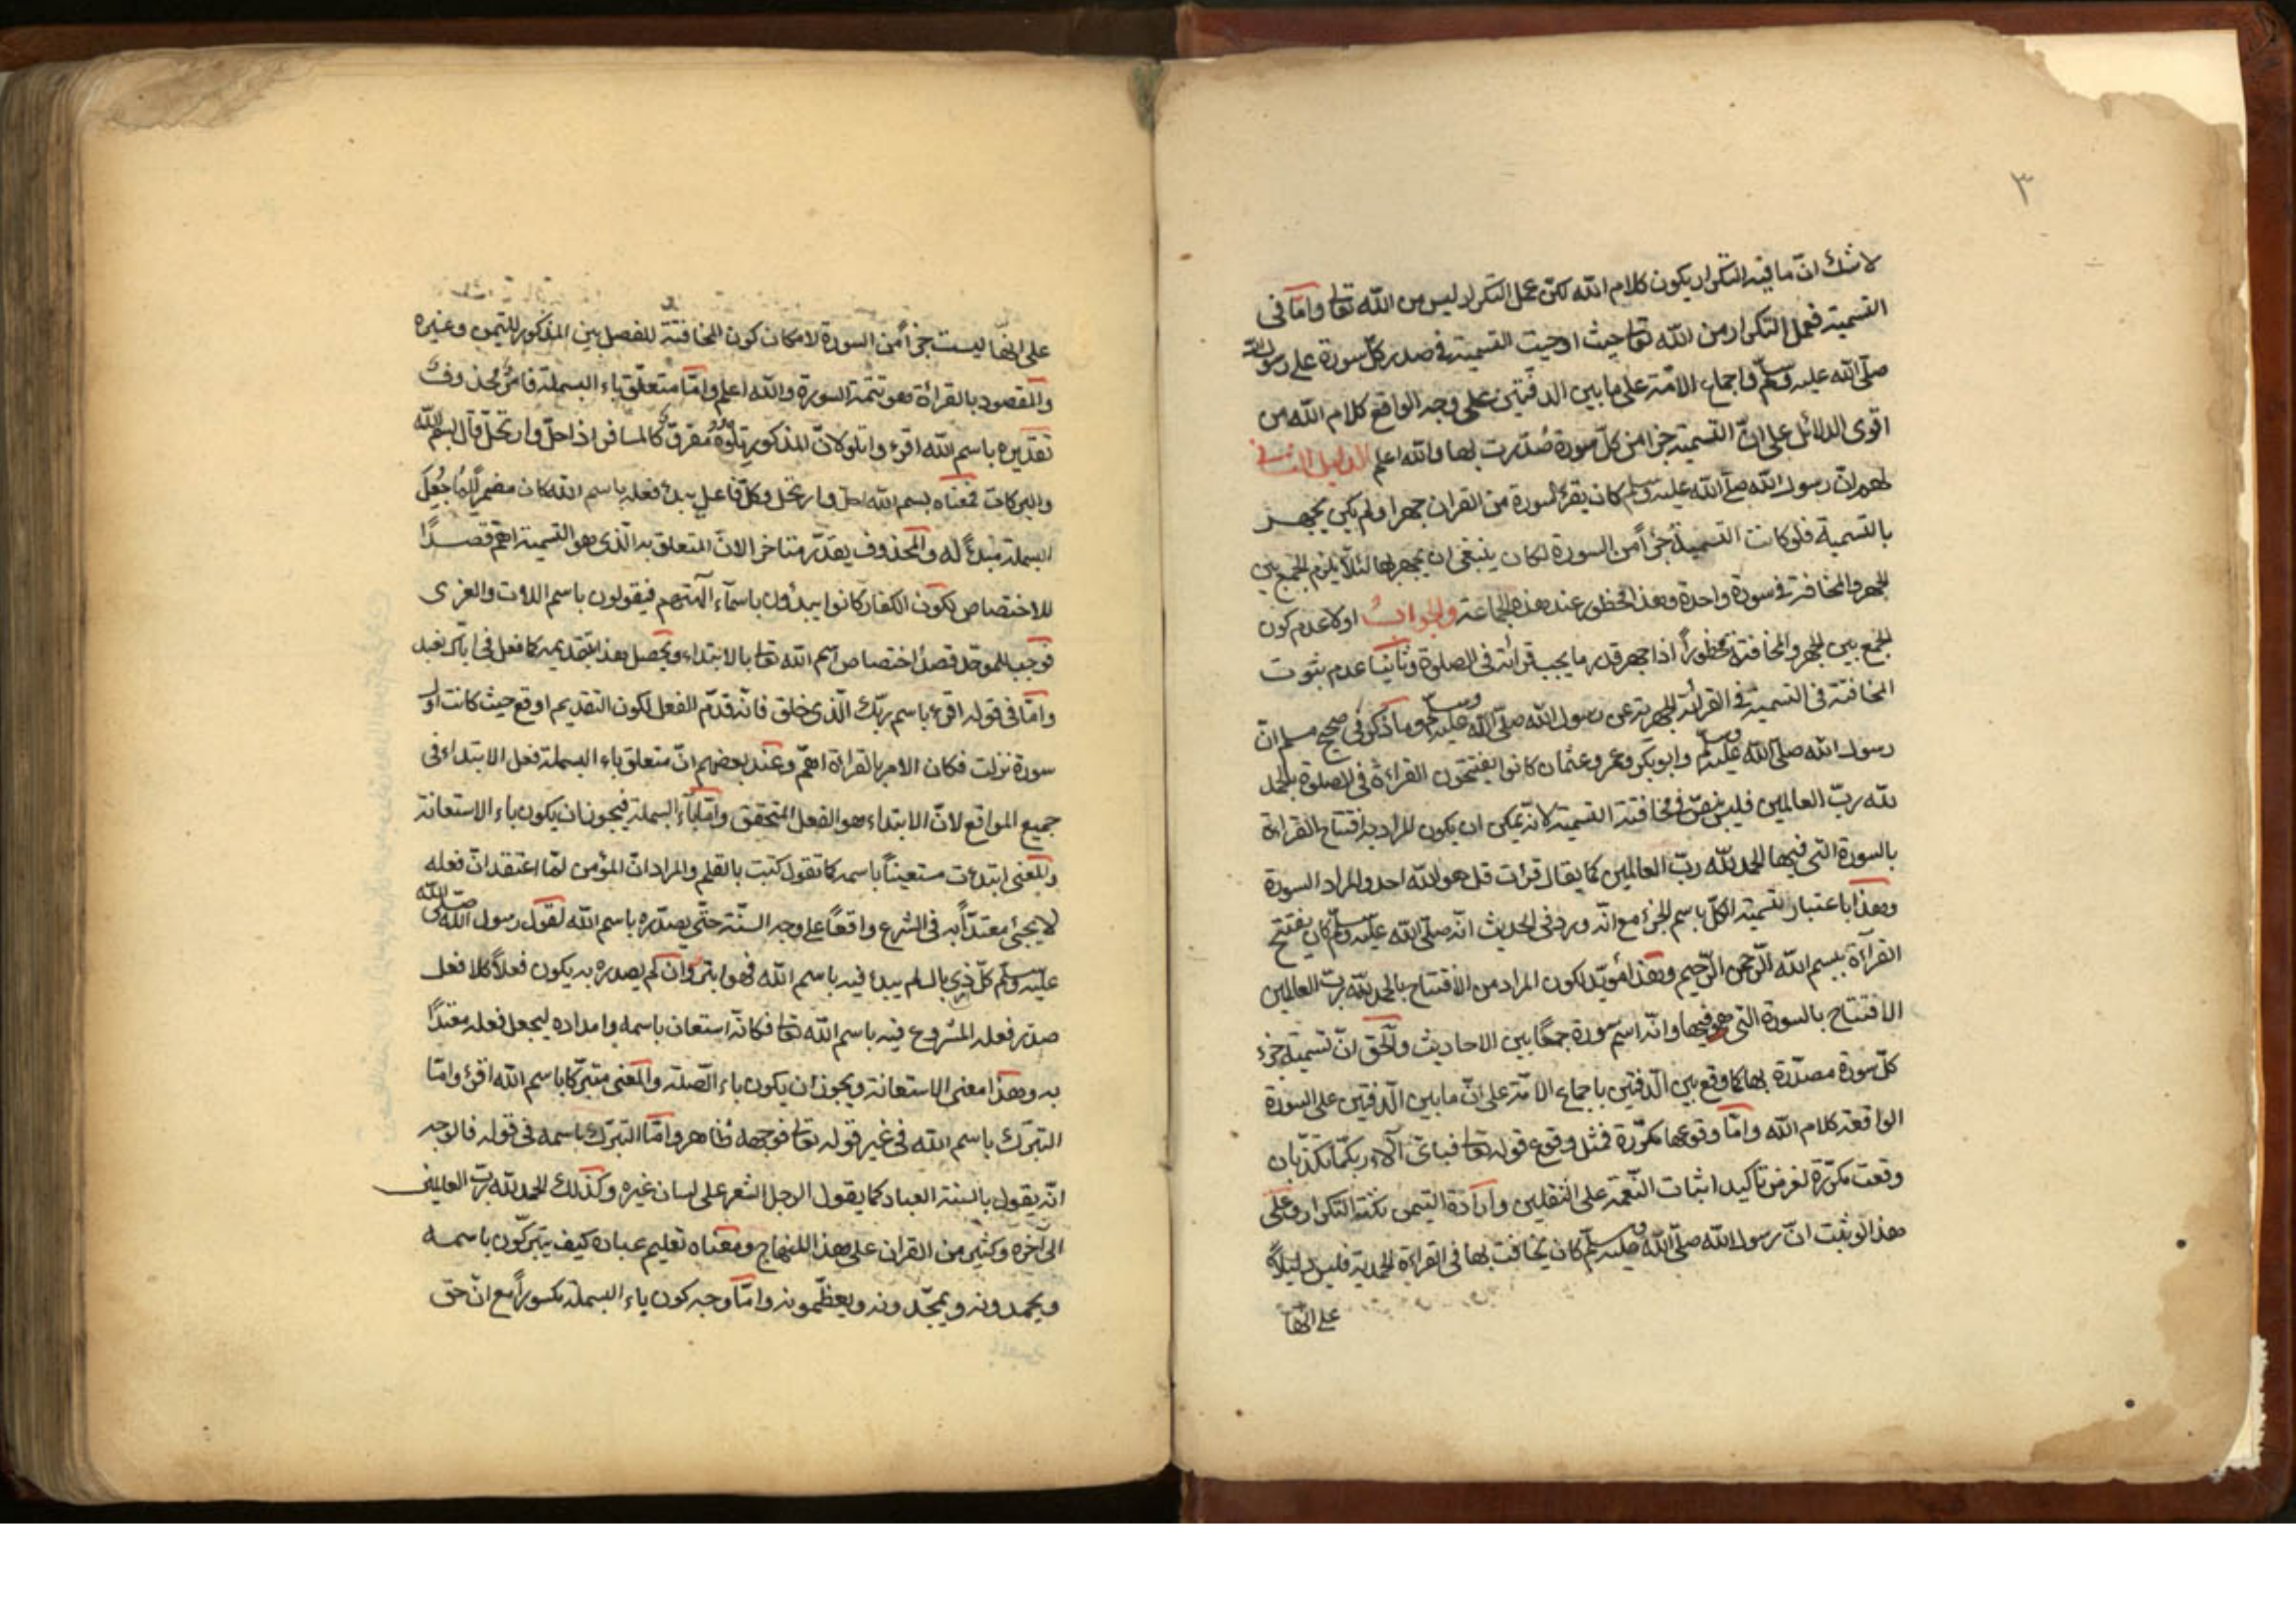 ٣
لا شك انّ ما فيه التكرار يكون كلام الله لكن عمل التكرار ليس من الله تعا وامّا في
التسمية فعمل التكرار من الله تعا حيث اوحيت التسمية في صدر كلّ سورة على رسول الله
صلّى الله عليه وسلّم واجماع الامّة على ما بين الدفّتين على وجه الواقع كلام الله من
اقوى الدلائل على انّ التسمية جزأ من كلّ سورة صُدّرت بها والله اعلم الدليل الثاني
لهم انّ رسول الله صلّى الله عليه وسلم كان يقرأ السورة من القران جهرا ولم يكن يجهر
بالتسمية فلو كانت التسمية جزأً من السورة لكان ينبغي ان يجهر بها لئلّا يلزم الجمع بين
الجهر والمخافتة في سورة واحدة وهذا محظور عند هذه الجماعة والجواب اولا عدم كون
الجمع بين الجهر والمخافتة محظوراً اذا جهر قدر ما يجب قرائته في الصلوة وثانيا عدم ثبوت
المخافتة في التسمية في القرائة الجهرية عن رسول الله صلّى الله عليه وسلّم وما ذكر في صحيح مسلم انّ
رسول الله صلّى الله عليه وسلّم وابو بكر وعمر وعثمان كانوا يفتتحون القراءة في الصلوة بالحمد
لله ربّ العالمين فليس بنصّ في مخافتة التسمية لانه يمكن ان يكون المراد به افتتاح القراءة
بالسورة التي فيها الحمد لله ربّ العالمين كما يقال قرأت قل هو الله احد والمراد السورة
وهذا باعتبار تسمية الكلّ باسم الجزء مع انّه ورد في الحديث انّه صلّى الله عليه وسلّم كان يفتتح
القرآة ببسم الله الرّحمن الرّحيم وهذا مؤيّد لكون المراد من الافتتاح بالحمد لله ربّ العالمين
الافتتاح بالسورة التي هو فيها وانّه اسم سورة جمعًا بين الاحاديث والحق انّ تسمية جزء
كلّ سورة مصدّرة بها كما وقع بين الدفتين باجماع الامّة على انّ ما بين الدفتين على السورة
الواقعة كلام الله وامّا وقوعها مكرّرة فمثل وقوع قوله تعا فباىّ آلاء ربكما تكذّبان
وقعت مكرّرة لغرض تأكيد اثبات النّعمة على الثقلين وارادة التيمن نكتة التكرار وعلى
هذا لو ثبت انّ رسول الله صلّى الله عليه وسلّم كان يخافت بها في القراءة الجهرية فليس دليلاً
على انّها
على انّها ليست جزأً من السورة لامكان كون المخافتة للفصل بين المذكور للتيمن وغيره
والمقصود بالقراءة فهو تتمة السورة والله اعلم وامّا متعلّق باء البسملة فامرٌ محذوف
تقديره باسم الله اقرء واتلو لانّ المذكور تلاوة مقروّ كالمسافر اذا حلّ وارتحل قال بسم الله
والبركات فمعناه بسم الله احل وارتحل وكلّ فاعل يبدء فعله باسم الله كان مضمراً لما جُعِلَ
البسملة مبدءً له والمحذوف يقدّر متأخر الانّ المتعلق به الّذي هو التسمية اهمّ قصدًا
للاختصاص لكون الكفار كانوا يبدؤن باسمآء آلهتهم فيقولون باسم اللات والعزى
فوجب للموحّد قصدُ اختصاص اسم الله تعا بالابتداء ويحصل بهذا بتقديمه كما فعل في ايّاك نعبد
وامّا في قوله اقرء باسم ربّك الّذي خلق فانّه قدّم الفعل لكون التقديم اوقع حيث كانت اول
سورة نزلت فكان الامر بالقراءة اهمّ وعند بعضهم انّ متعلق باء البسملة فعل الابتداء في
جميع المواقع لانّ الابتداء هو الفعل المتحقق وامّا باء البسملة فيجوز ان يكون باء الاستعانة
والمعنى ابتدءت مستعيناً باسمه كما تقول كتبت بالقلم والمراد انّ المؤمن لمّا اعتقد انّ فعله
لا يجئ معتدّاً به في الشرع واقعاً على وجه السنّة حتّى يصدّره باسم الله لقول رسول الله صلّى الله
عليه وسلّم كلّ ذي بال لم يبدء فيه باسم الله فهو ابتر وان لم يصدره به يكون فعلاً كلا فعل
صدّر فعله المشروع فيه باسم الله تعا فكانّه استعان باسمه وامداده ليجعل فعله معتدًّا
به وهذا معنى الاستعانة ويجوز ان يكون باء الصّلة والمعنى متبرّكا باسم الله اقرئ وامّا
التبرّك باسم الله في غير قوله تعا فوجهه ظاهر وامّا التبرّك باسمه في قوله فالوجه
انّه يقول بالسنة العباد كما يقول الرجل الشعر على لسان غيره وكذلك الحمد لله ربّ العالمين
الى آخره وكثير من القران على هذا المنهاج ومعناه تعليم عباده كيف يتبرّكون باسمه
ويحمدونه ويمجّدونه ويعظّمونه وامّا وجه كون باء البسملة مكسوراً مع انّ حق